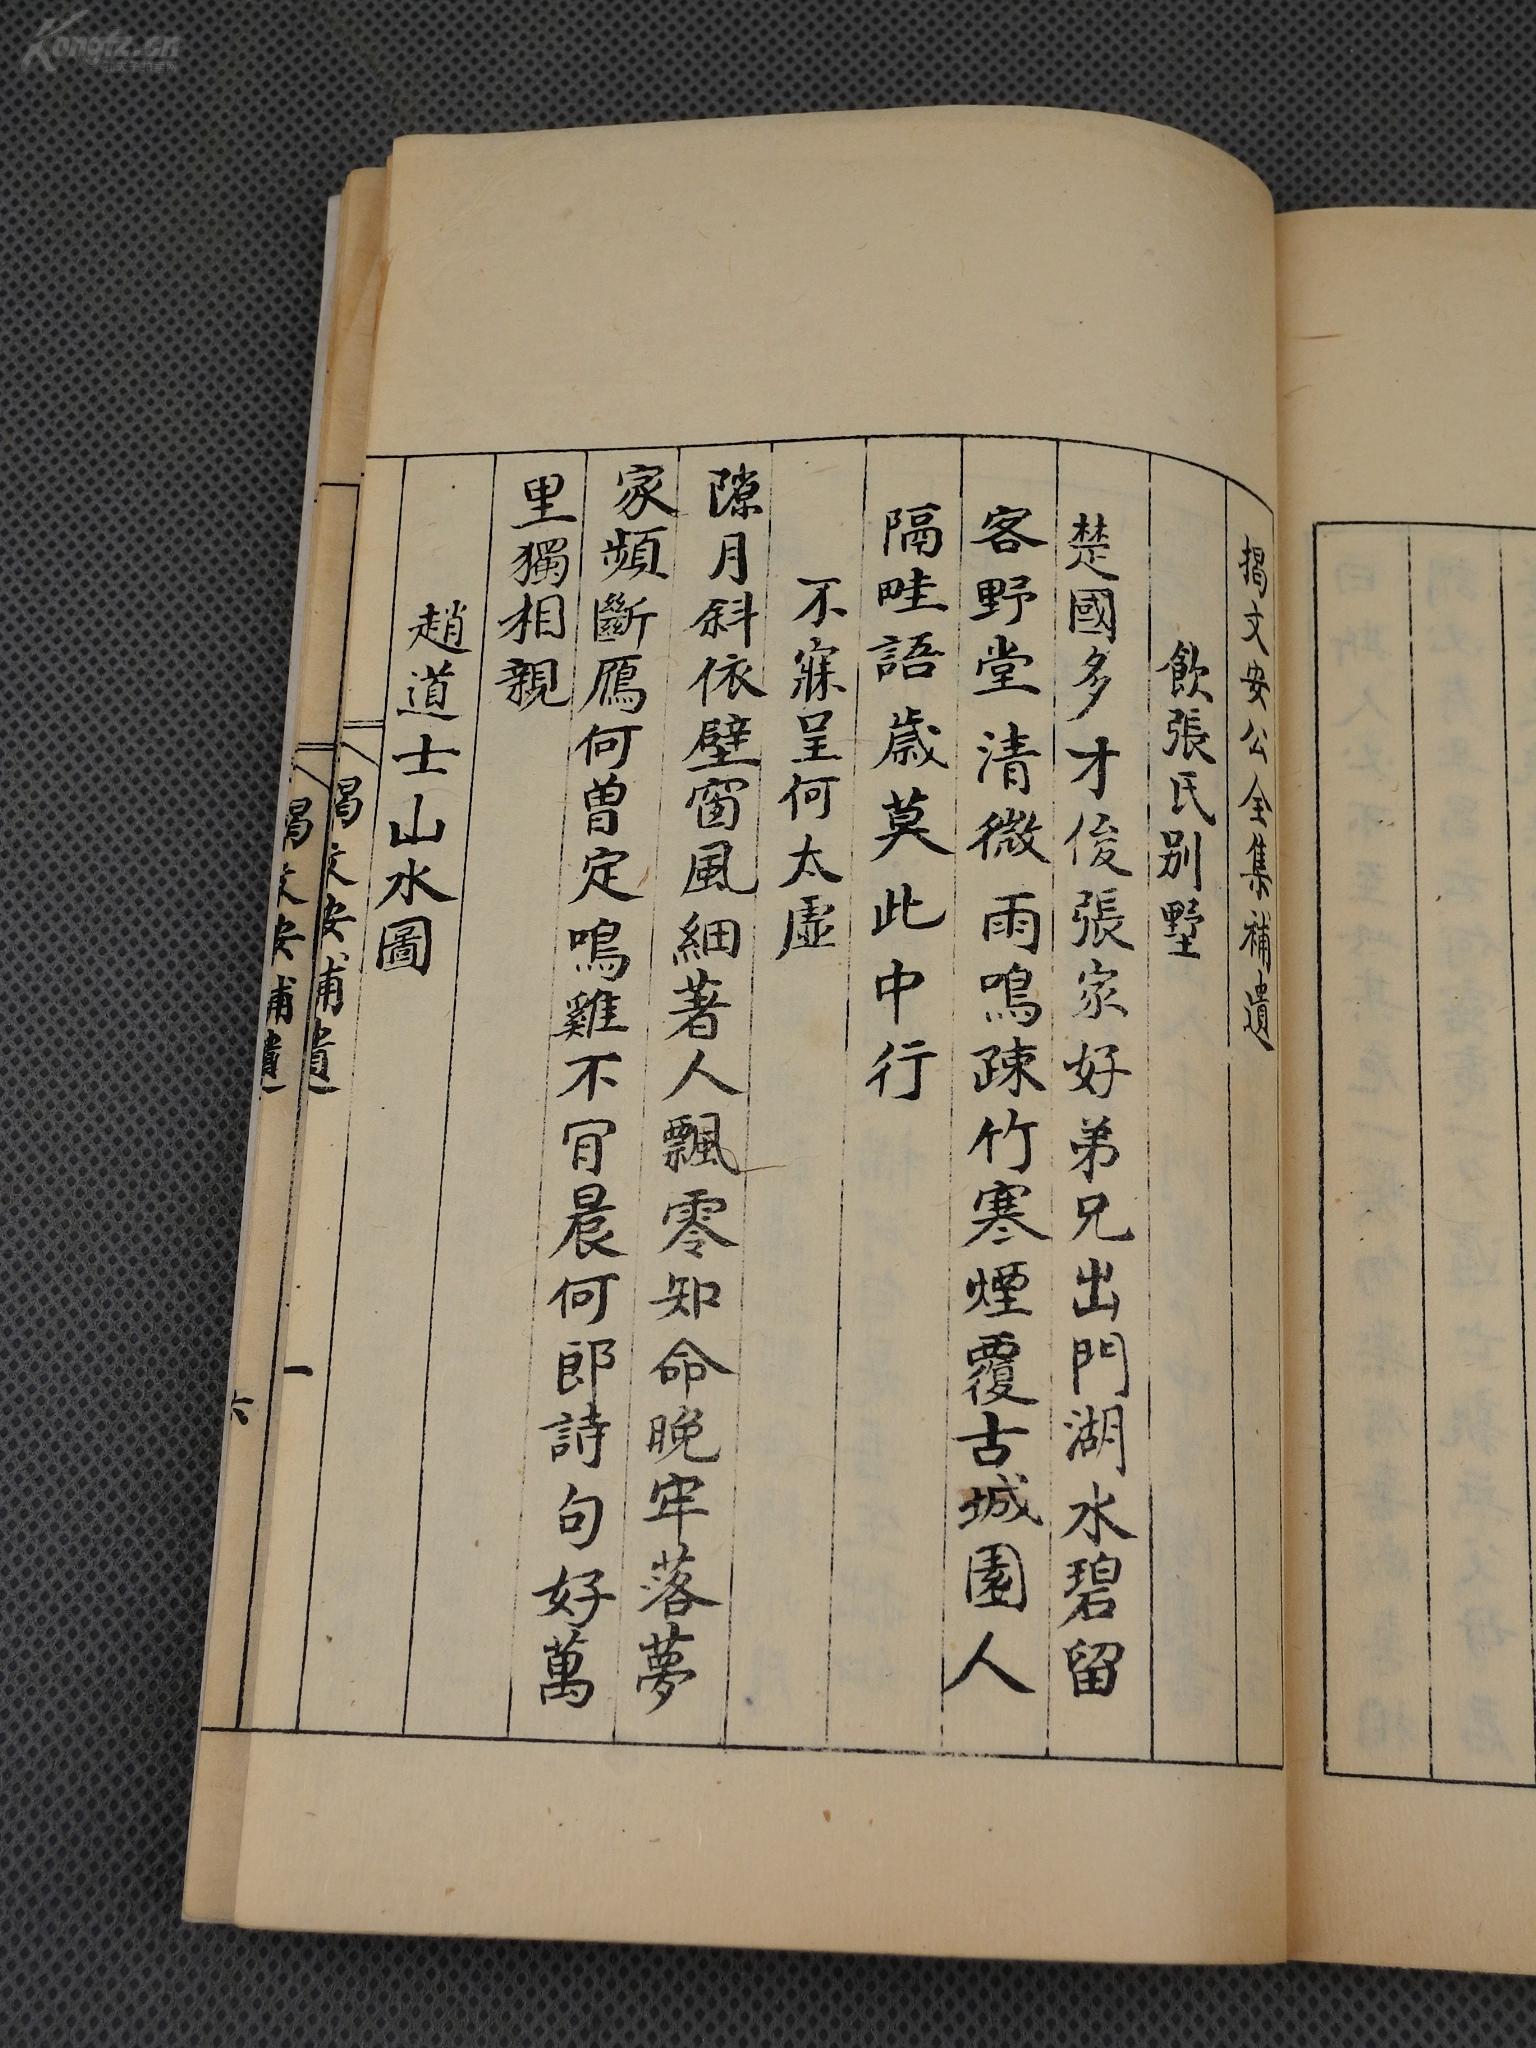 揭文安公全集補遺
飲張氏別墅
楚國多才俊張家好弟兄出門湖水碧留
客野堂清微雨鳴疎竹寒煙覆古城園人
隔畦語歲莫此中行
不寐呈何太虛
隙月斜依壁窗風細著人飄零知命晚牢落夢
家頻斷鴈何曾定鳴雞不肎晨何郎詩句好萬
里獨相親
趙道士山水圖
揭文安補遺
一
揭文安補遺
六
Kongfz.cn